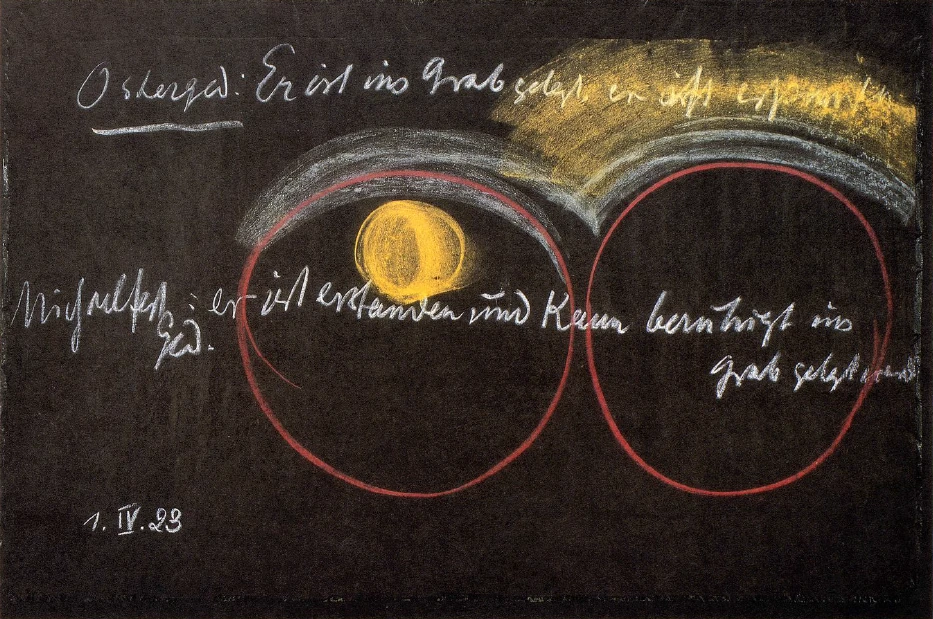 Osterged: Er ist ins Grab gelegt, er ist erstanden
Michaelfest: er ist erstanden und kann beruhigt ins
Ged.
Grab gelegt werd
1. IV. 23